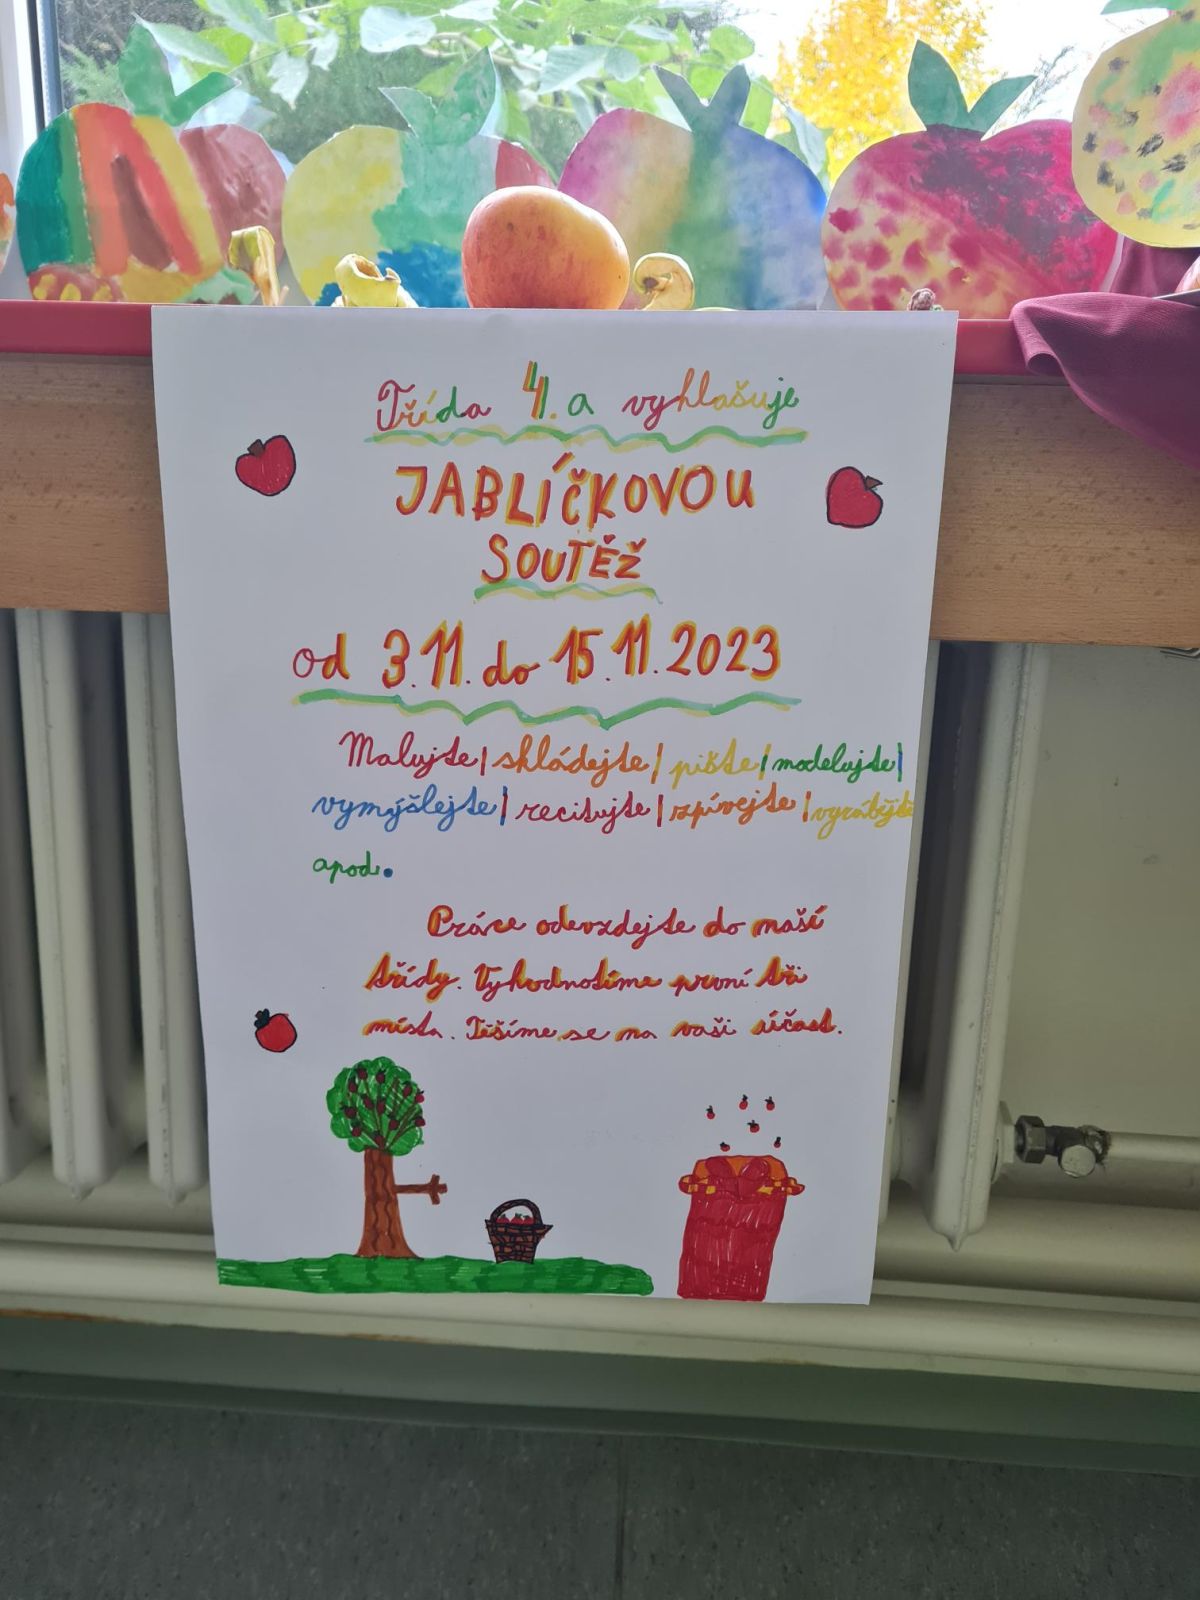 Třída 4.a vyhlašuje
JABLÍČKOVOU
SOUTĚŽ
od 3.11. do 15.11.2023
Malujte | skládejte | pište | modelujte |
vymýšlejte | recitujte | zpívejte | vyrábějte
apod.
Práce odevzdejte do naší
třídy. Vyhodnotíme první tři
místa. Těšíme se na vaši účast.